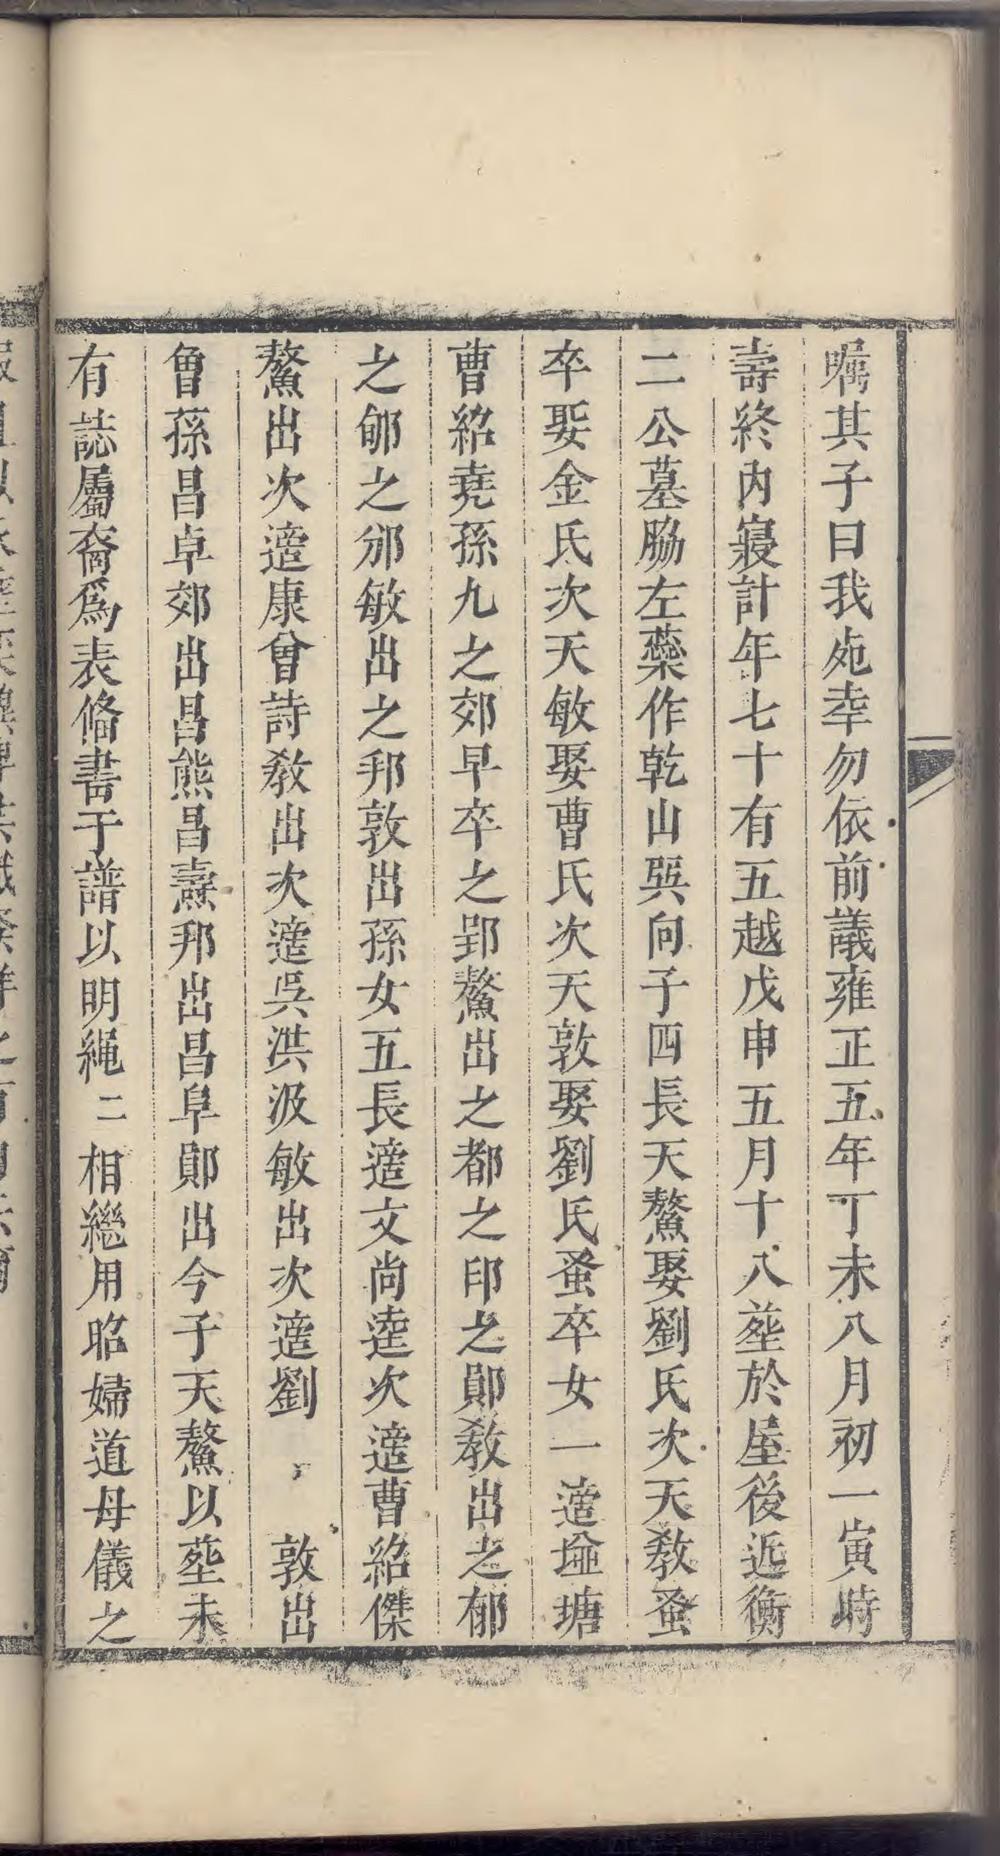 囑其子曰我死幸勿依前議雍正五年丁未八月初一寅時
壽終內寢計年七十有五越戊申五月十八塟於屋後近衡
二公墓脇左藥作乾山巽向子四長天鰲娶劉氏次天教蚤
卒娶金氏次天敏娶曹氏次天敦娶劉氏蚤卒女一適塘
曹紹堯孫九之郊早卒之郢鰲出之都之印之鄖教出之郁
之郇之邠敏出之邦敦出孫女五長適文尚逵次適曹紹傑
鰲出次適康曾詩教出次適吳洪汲敏出次適劉 敦出
曾孫昌卓郊出昌熊昌燾邦出昌阜鄖出今子天鰲以塟未
有誌屬裔為表俻書于譜以明繩二相繼用昭婦道母儀之